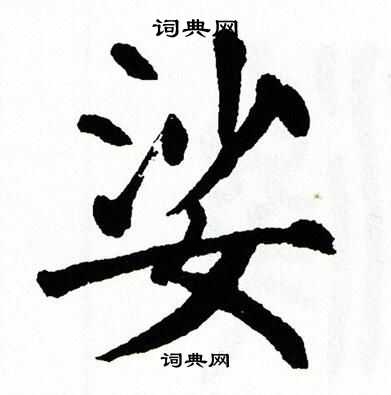 词典网
娑
词典网